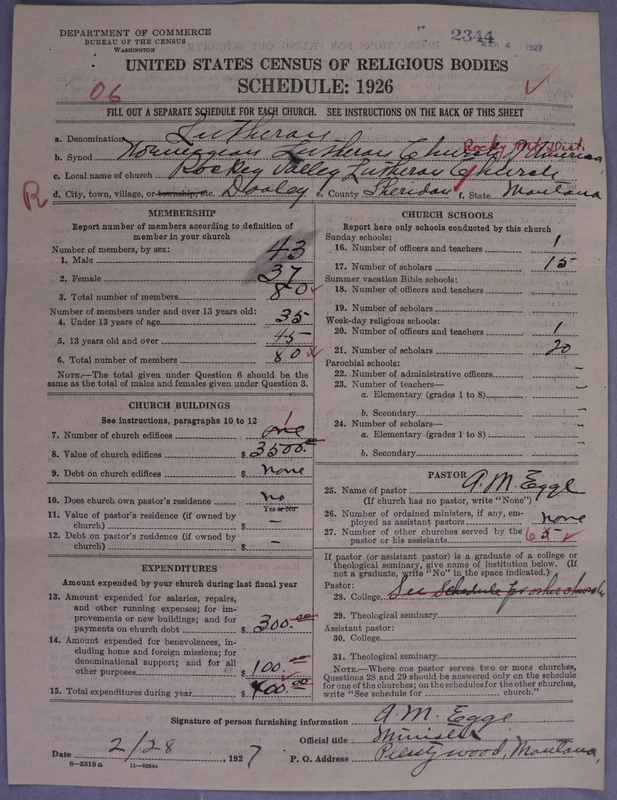 DEPARTMENT OF COMMERCE
BUREAU OF THE CENSUS
WASHINGTON
2344
MAR 4 1927
UNITED STATES CENSUS OF RELIGIOUS BODIES
SCHEDULE: 1926
06
FILL OUT A SEPARATE SCHEDULE FOR EACH CHURCH. SEE INSTRUCTIONS ON THE BACK OF THIS SHEET
a. Denomination Lutheran
Rocky Mt. Dist.
b. Synod Norwegian Lutheran Church of America
c. Local name of church Rockey Valley Lutheran Church
R
d. City, town, village, or township, etc. Dooley e. County Sheridan f. State Montana
MEMBERSHIP
Report number of members according to definition of
member in your church
Number of members, by sex:
1. Male 43
2. Female 37
3. Total number of members 80
Number of members under and over 13 years old:
4. Under 13 years of age 35
5. 13 years old and over 45
6. Total number of members 80
NOTE.—The total given under Question 6 should be the
same as the total of males and females given under Question 3.
CHURCH BUILDINGS
See instructions, paragraphs 10 to 12
7. Number of church edifices one 1
8. Value of church edifices $ 3500.00
9. Debt on church edifices $ none
10. Does church own pastor's residence no
Yes or No
11. Value of pastor's residence (if owned by
church) $ —
12. Debt on pastor's residence (if owned by
church) $ —
EXPENDITURES
Amount expended by your church during last fiscal year
13. Amount expended for salaries, repairs,
and other running expenses; for im-
provements or new buildings; and for
payments on church debt $ 300.00
14. Amount expended for benevolences, in-
cluding home and foreign missions; for
denominational support; and for all
other purposes 100.00
15. Total expenditures during year $ 400.00
CHURCH SCHOOLS
Report here only schools conducted by this church
Sunday schools:
16. Number of officers and teachers 1
17. Number of scholars 15
Summer vacation Bible schools:
18. Number of officers and teachers
19. Number of scholars
Week-day religious schools:
20. Number of officers and teachers 1
21. Number of scholars 20
Parochial schools:
22. Number of administrative officers
23. Number of teachers—
a. Elementary (grades 1 to 8)
b. Secondary
24. Number of scholars—
a. Elementary (grades 1 to 8)
b. Secondary
PASTOR
25. Name of pastor A. M. Egge
(If church has no pastor, write "None")
26. Number of ordained ministers, if any, em-
ployed as assistant pastors none
27. Number of other churches served by the
pastor or his assistants 6 5
If pastor (or assistant pastor) is a graduate of a college or
theological seminary, give name of institution below. (If
not a graduate, write "No" in the space indicated.)
Pastor:
28. College See Schedule for other churches
29. Theological seminary
Assistant pastor:
30. College
31. Theological seminary
NOTE.—Where one pastor serves two or more churches,
Questions 28 and 29 should be answered only on the schedule
for one of the churches; on the schedules for the other churches,
write "See schedule for church."
Signature of person furnishing information A. M. Egge
Official title Minister
Date 2/28, 1927 P. O. Address Plentywood, Montana
8-5518a